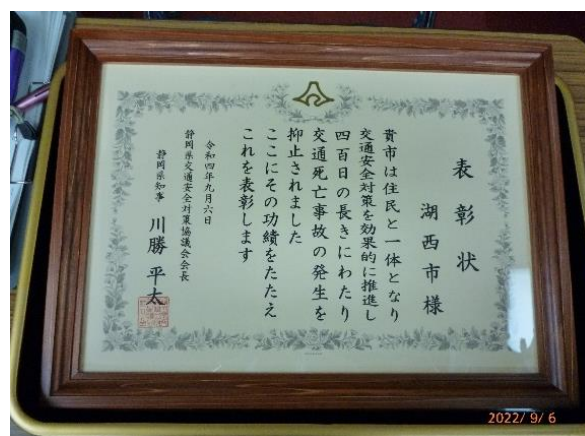 表彰状
湖西市様
貴市は住民と一体となり
交通安全対策を効果的に推進し
四百日の長きにわたり
交通死亡事故の発生を
抑止されました
ここにその功績をたたえ
これを表彰します
令和四年九月六日
静岡県交通安全対策協議会会長
静岡県知事 川勝平太
2022/ 9/ 6